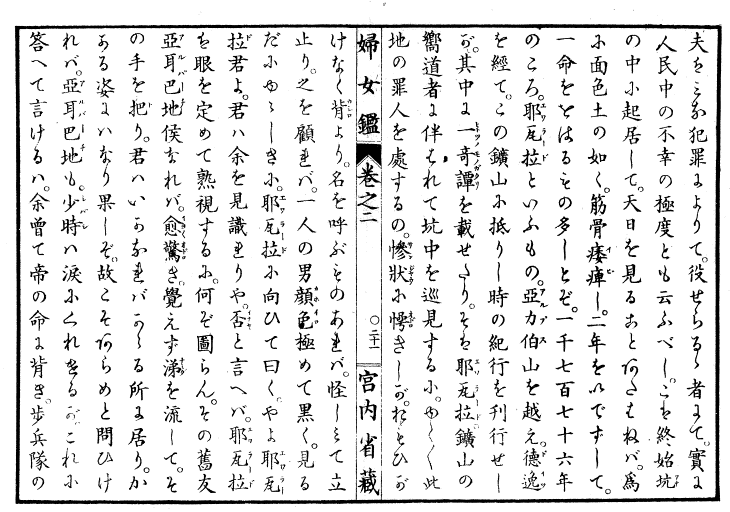 夫はみな犯罪によりて。役せらるゝ者にて。實に
人民中の不幸の極度とも云ふべし。こを終始坑
の中に起居して。天日を見ることあたはねば。爲
に面色土の如く。筋骨痿痺し。二年をいでずして。
一命ををはるもの多しとぞ。一千七百七十六年
のころ。耶瓦拉といふもの。亞力伯山を越え。德逸
を經て。この鑛山に抵りし時の紀行を刊行せし
が。其中に一奇譚を載せたり。そは耶瓦拉鑛山の
嚮道者に伴はれて坑中を巡見するに。ゆくゆく此
地の罪人を處するの。慘狀に愕きしが。おもひが
婦女鑑 卷之二 ○二十一 宮内省藏
けなく背より。名を呼ぶものあれば。怪しみて立
止り。之を顧れば。一人の男顔色極めて黒く。見る
だにゆゝしきに。耶瓦拉に向ひて曰く。やよ耶瓦
拉君よ。君ハ余を見識れりや。否と言へば。耶瓦拉
を眼を定めて熟視するに。何ぞ圖らん。その舊友
亞耳巴地侯なれば。愈驚き覺えず涕を流して。そ
の手を把り。君ハいかなればかゝる所に居り。か
ある姿にハなり果しぞ。故こそあらめと問ひけ
れば。亞耳巴地も。少時ハ淚にくれ居るがこれに
答へて言けるハ。余曾て帝の命に背き。步兵隊の